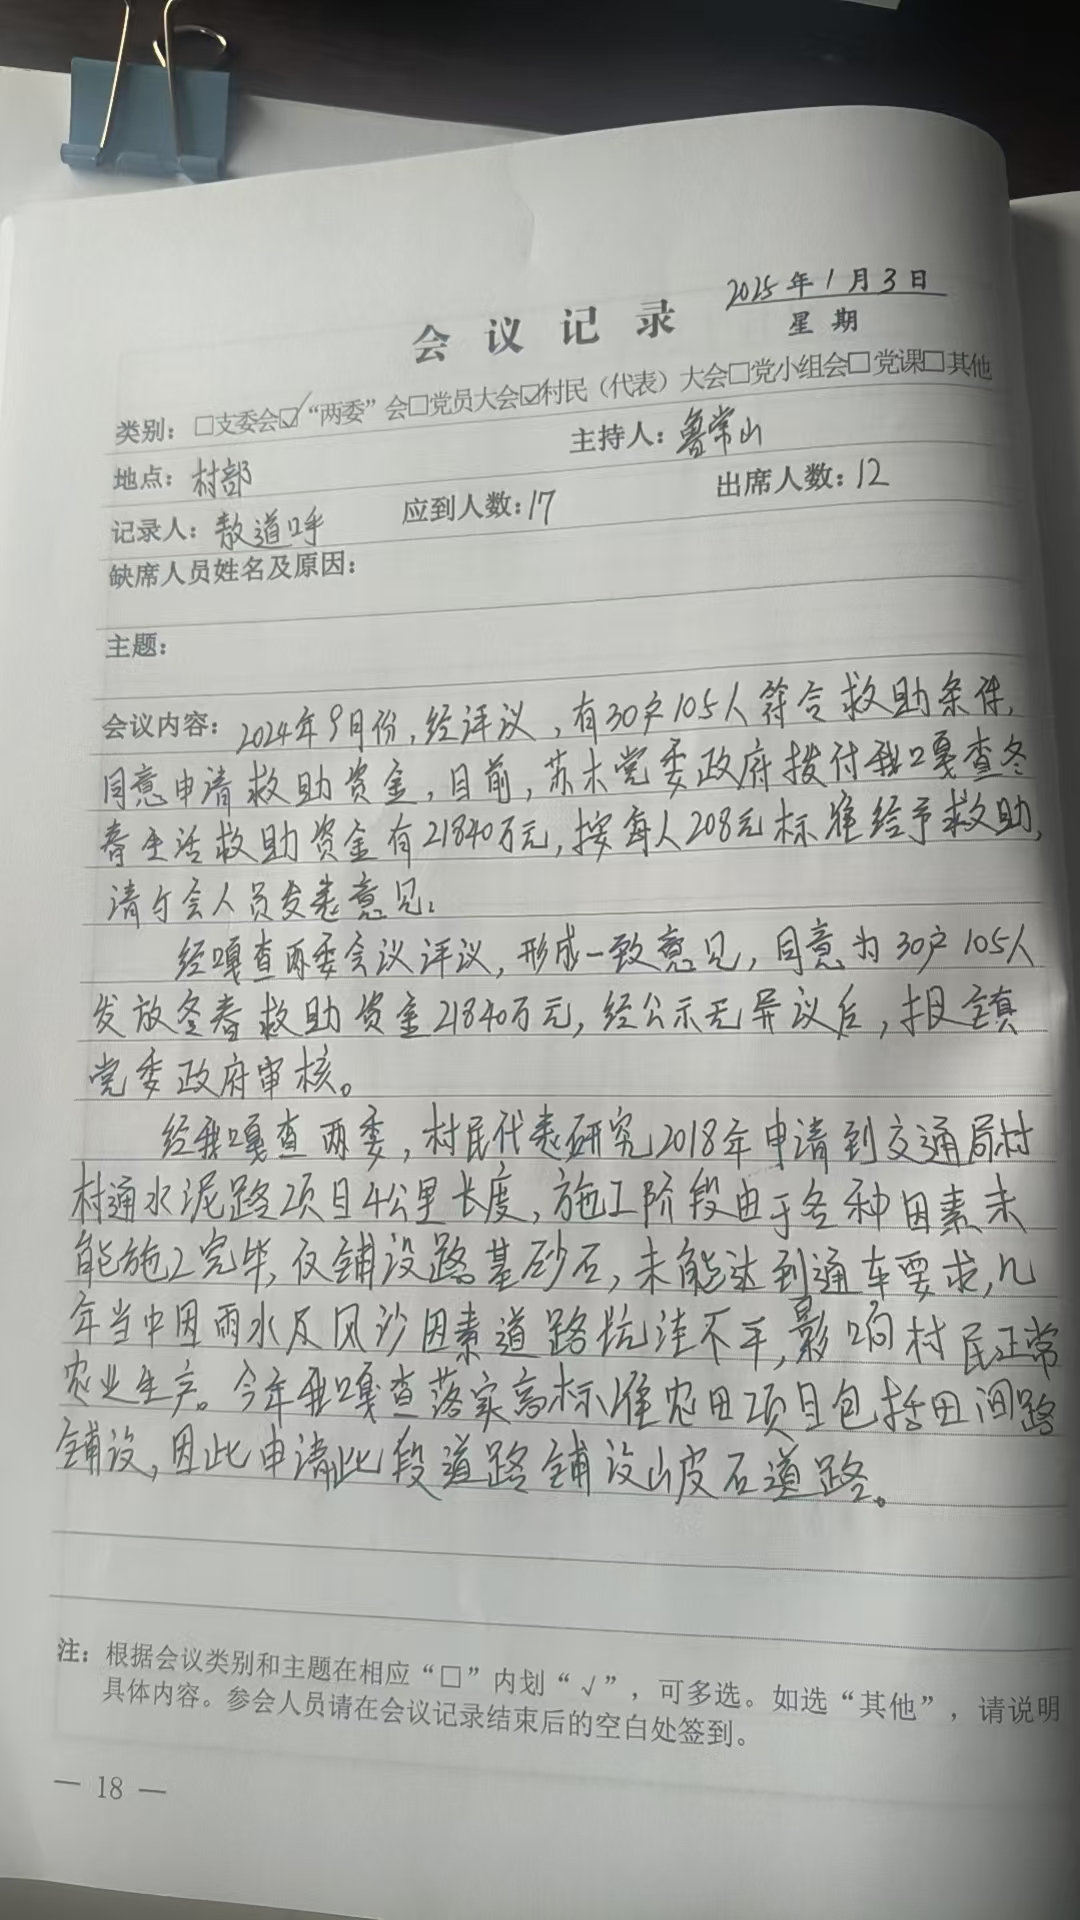 2025年1月3日
会议记录
星期
类别：□支委会☑“两委”会□党员大会☑村民（代表）大会□党小组会□党课□其他
地点：村部 主持人：鲁常山
记录人：敖道呼 应到人数：17 出席人数：12
缺席人员姓名及原因：
主题：
会议内容：2024年9月份，经评议，有30户105人符合救助条件，
同意申请救助资金，目前，苏木党委政府拨付我嘎查冬
春生活救助资金有21840万元，按每人208元标准给予救助，
请与会人员发表意见。
经嘎查两委会议评议，形成一致意见，同意为30户105人
发放冬春救助资金21840万元，经公示无异议后，报镇
党委政府审核。
经我嘎查两委，村民代表研究2018年申请到交通局村
村通水泥路项目4公里长度，施工阶段由于各种因素未
能施工完毕，仅铺设路基砂石，未能达到通车要求，几
年当中因雨水及风沙因素道路坑洼不平，影响村民正常
农业生产。今年我嘎查落家高标准农田项目包括田间路
铺设，因此申请此段道路铺设山皮石道路。
注：根据会议类别和主题在相应“□”内划“√”，可多选。如选“其他”，请说明
具体内容。参会人员请在会议记录结束后的空白处签到。
— 18 —